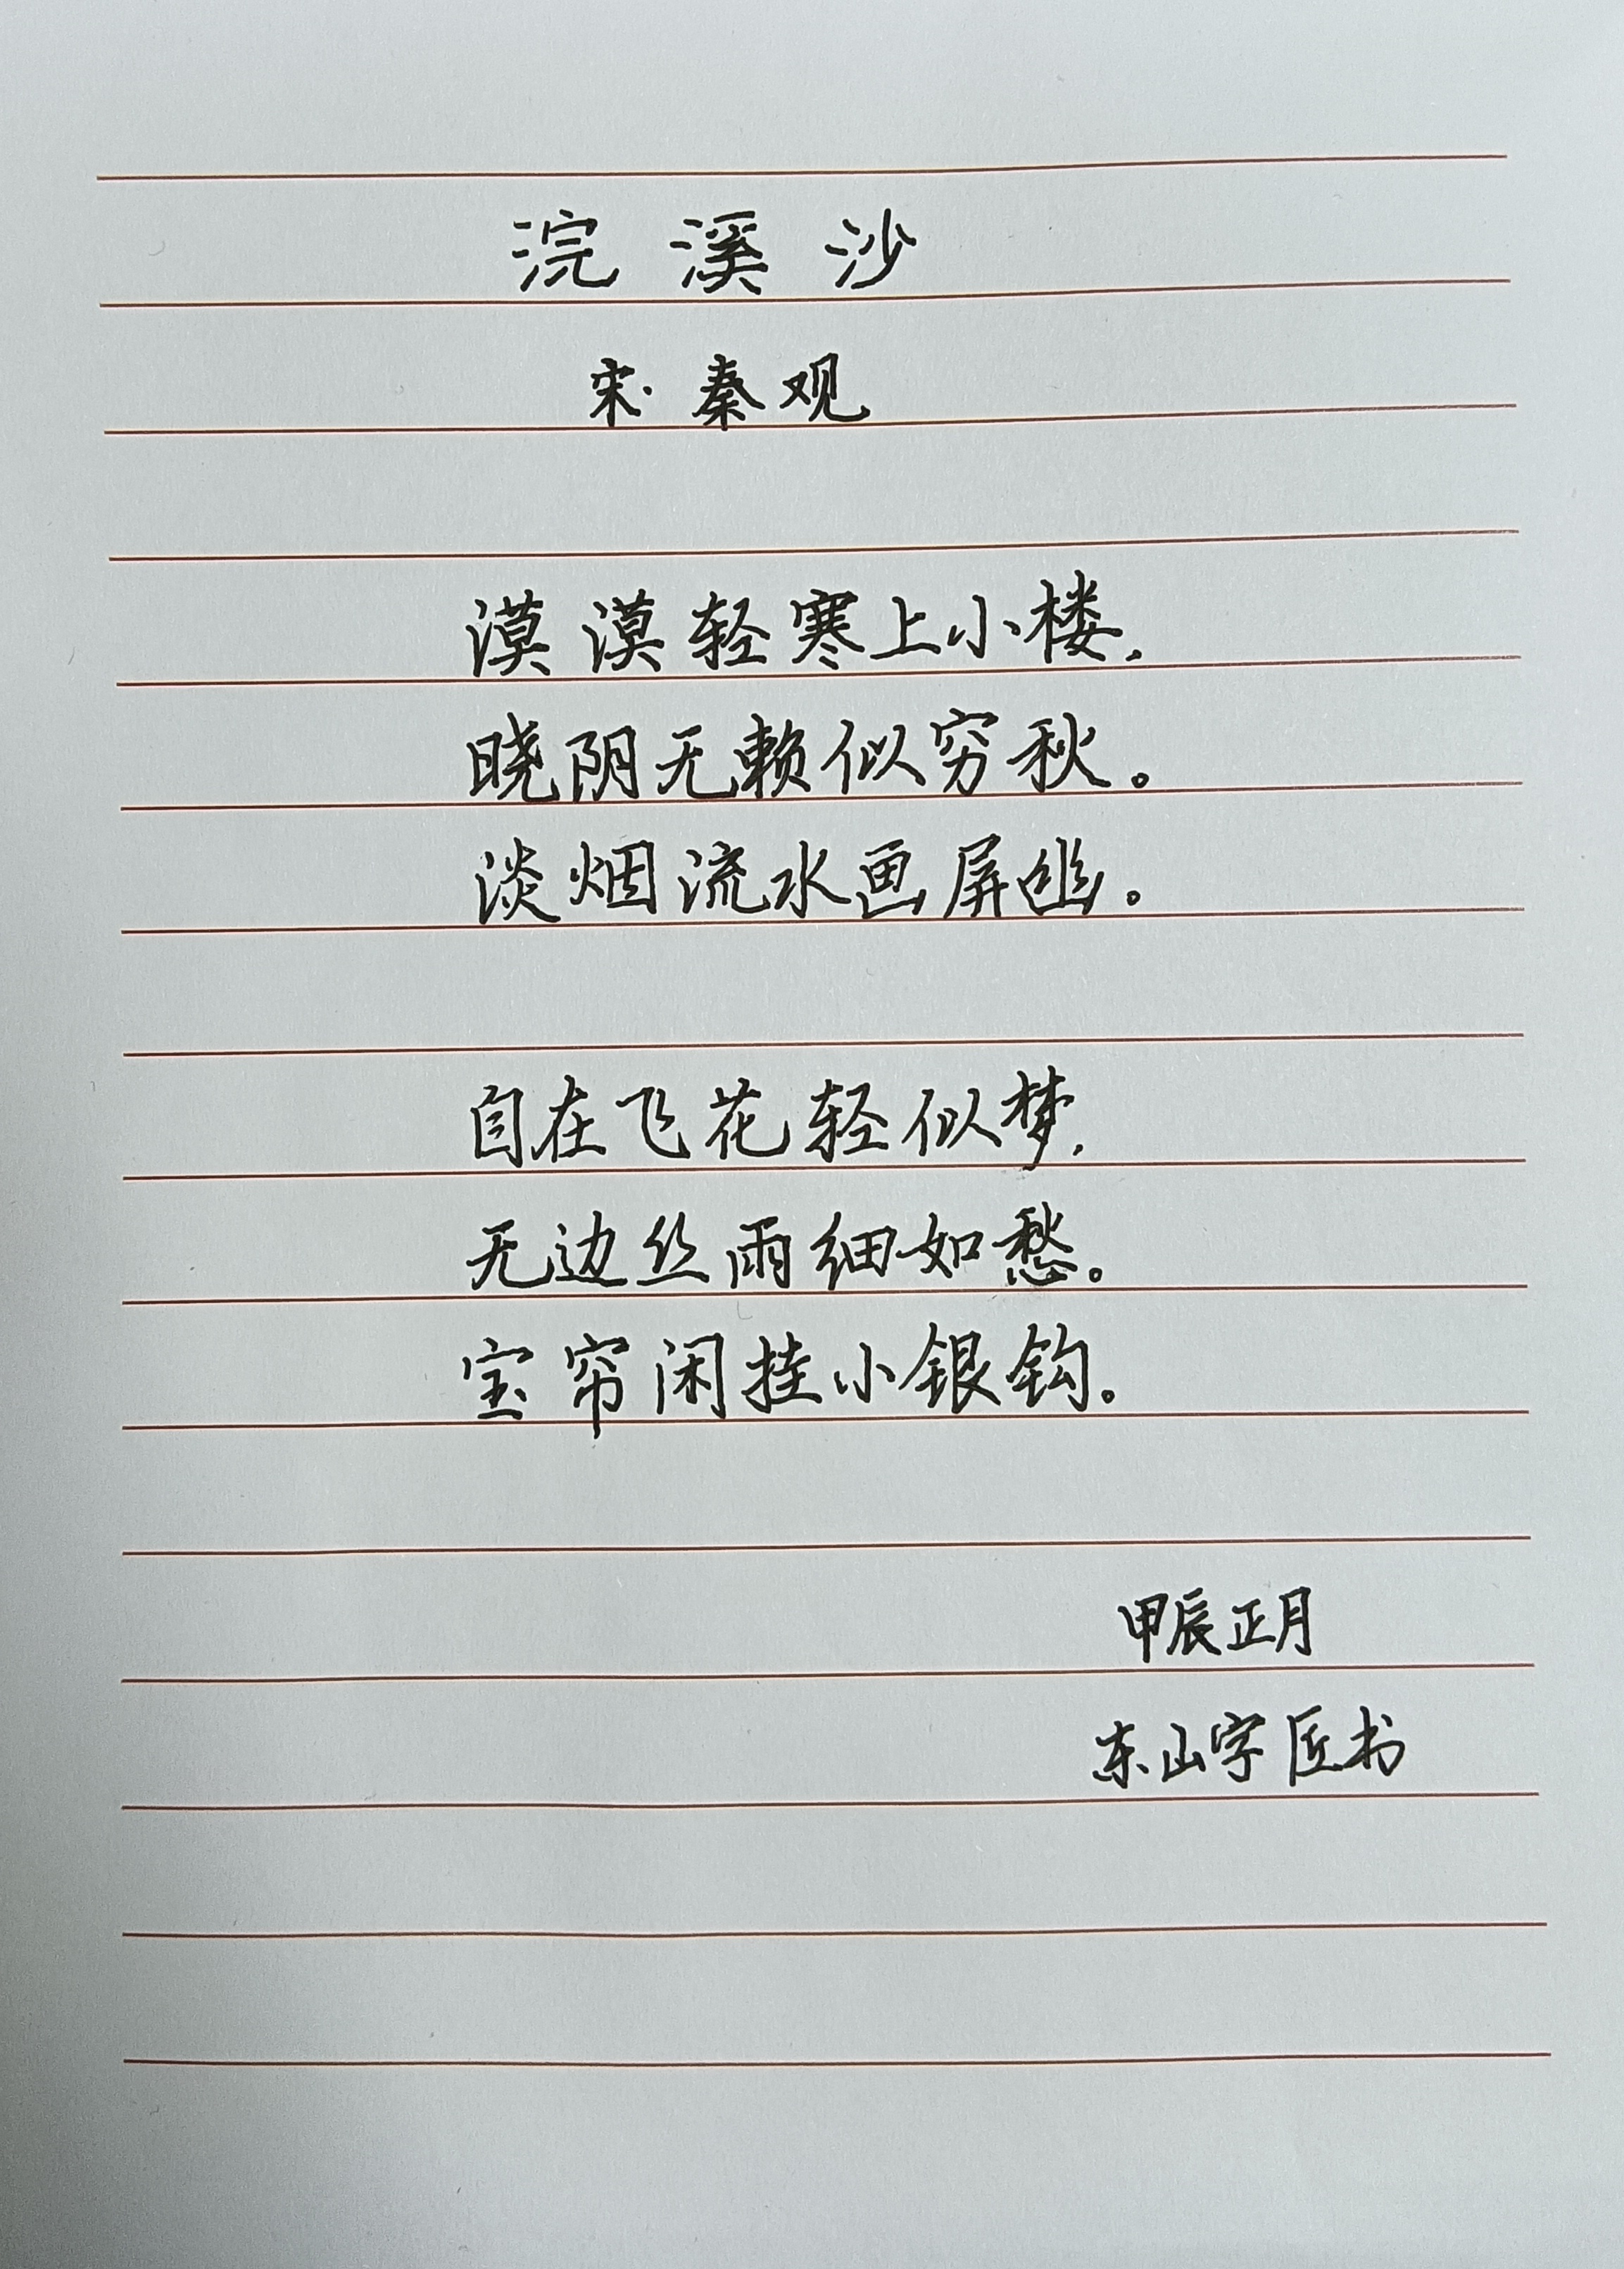 浣溪沙
宋·秦观
漠漠轻寒上小楼，
晓阴无赖似穷秋。
淡烟流水画屏幽。
自在飞花轻似梦，
无边丝雨细如愁。
宝帘闲挂小银钩。
甲辰正月
东山字匠书